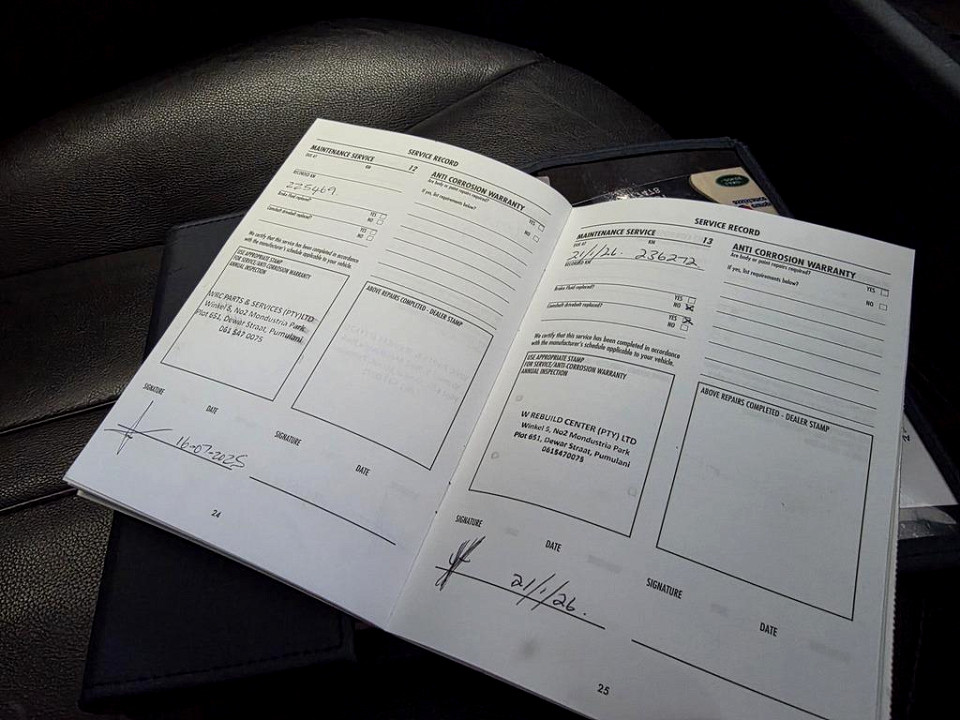 SERVICE RECORD
MAINTENANCE SERVICE 12
DUE AT OR
RECORDED KM
225469
Brake Fluid replaced? YES
NO
Camshaft drivebelt replaced? YES
NO
We certify that this service has been completed in accordance
with the manufacturer's schedule applicable to your vehicle.
USE APPROPRIATE STAMP
FOR SERVICE/ANTI-CORROSION WARRANTY
ANNUAL INSPECTION
WRC PARTS & SERVICES (PTY)LTD
Winkel 5, No2 Mondustria Park
Plot 651, Dewar Straat, Pumulani
061 847 0075
SIGNATURE
DATE
16-07-2025
ANTI CORROSION WARRANTY
Are body or paint repairs required?
YES
NO
If yes, list requirements below?
ABOVE REPAIRS COMPLETED - DEALER STAMP
SIGNATURE
DATE
24
SERVICE RECORD
MAINTENANCE SERVICE 13
DUE AT KM
21/1/26. 236272
RECORDED KM
Brake Fluid replaced? YES
NO
Camshaft drivebelt replaced? YES
NO
We certify that this service has been completed in accordance
with the manufacturer's schedule applicable to your vehicle.
USE APPROPRIATE STAMP
FOR SERVICE/ANTI-CORROSION WARRANTY
ANNUAL INSPECTION
W REBUILD CENTER (PTY) LTD
Winkel 5, No2 Mondustria Park
Plot 651, Dewar Straat, Pumulani
0618470075
SIGNATURE
DATE
21/1/26.
ANTI CORROSION WARRANTY
Are body or paint repairs required?
YES
NO
If yes, list requirements below?
ABOVE REPAIRS COMPLETED - DEALER STAMP
SIGNATURE
DATE
25